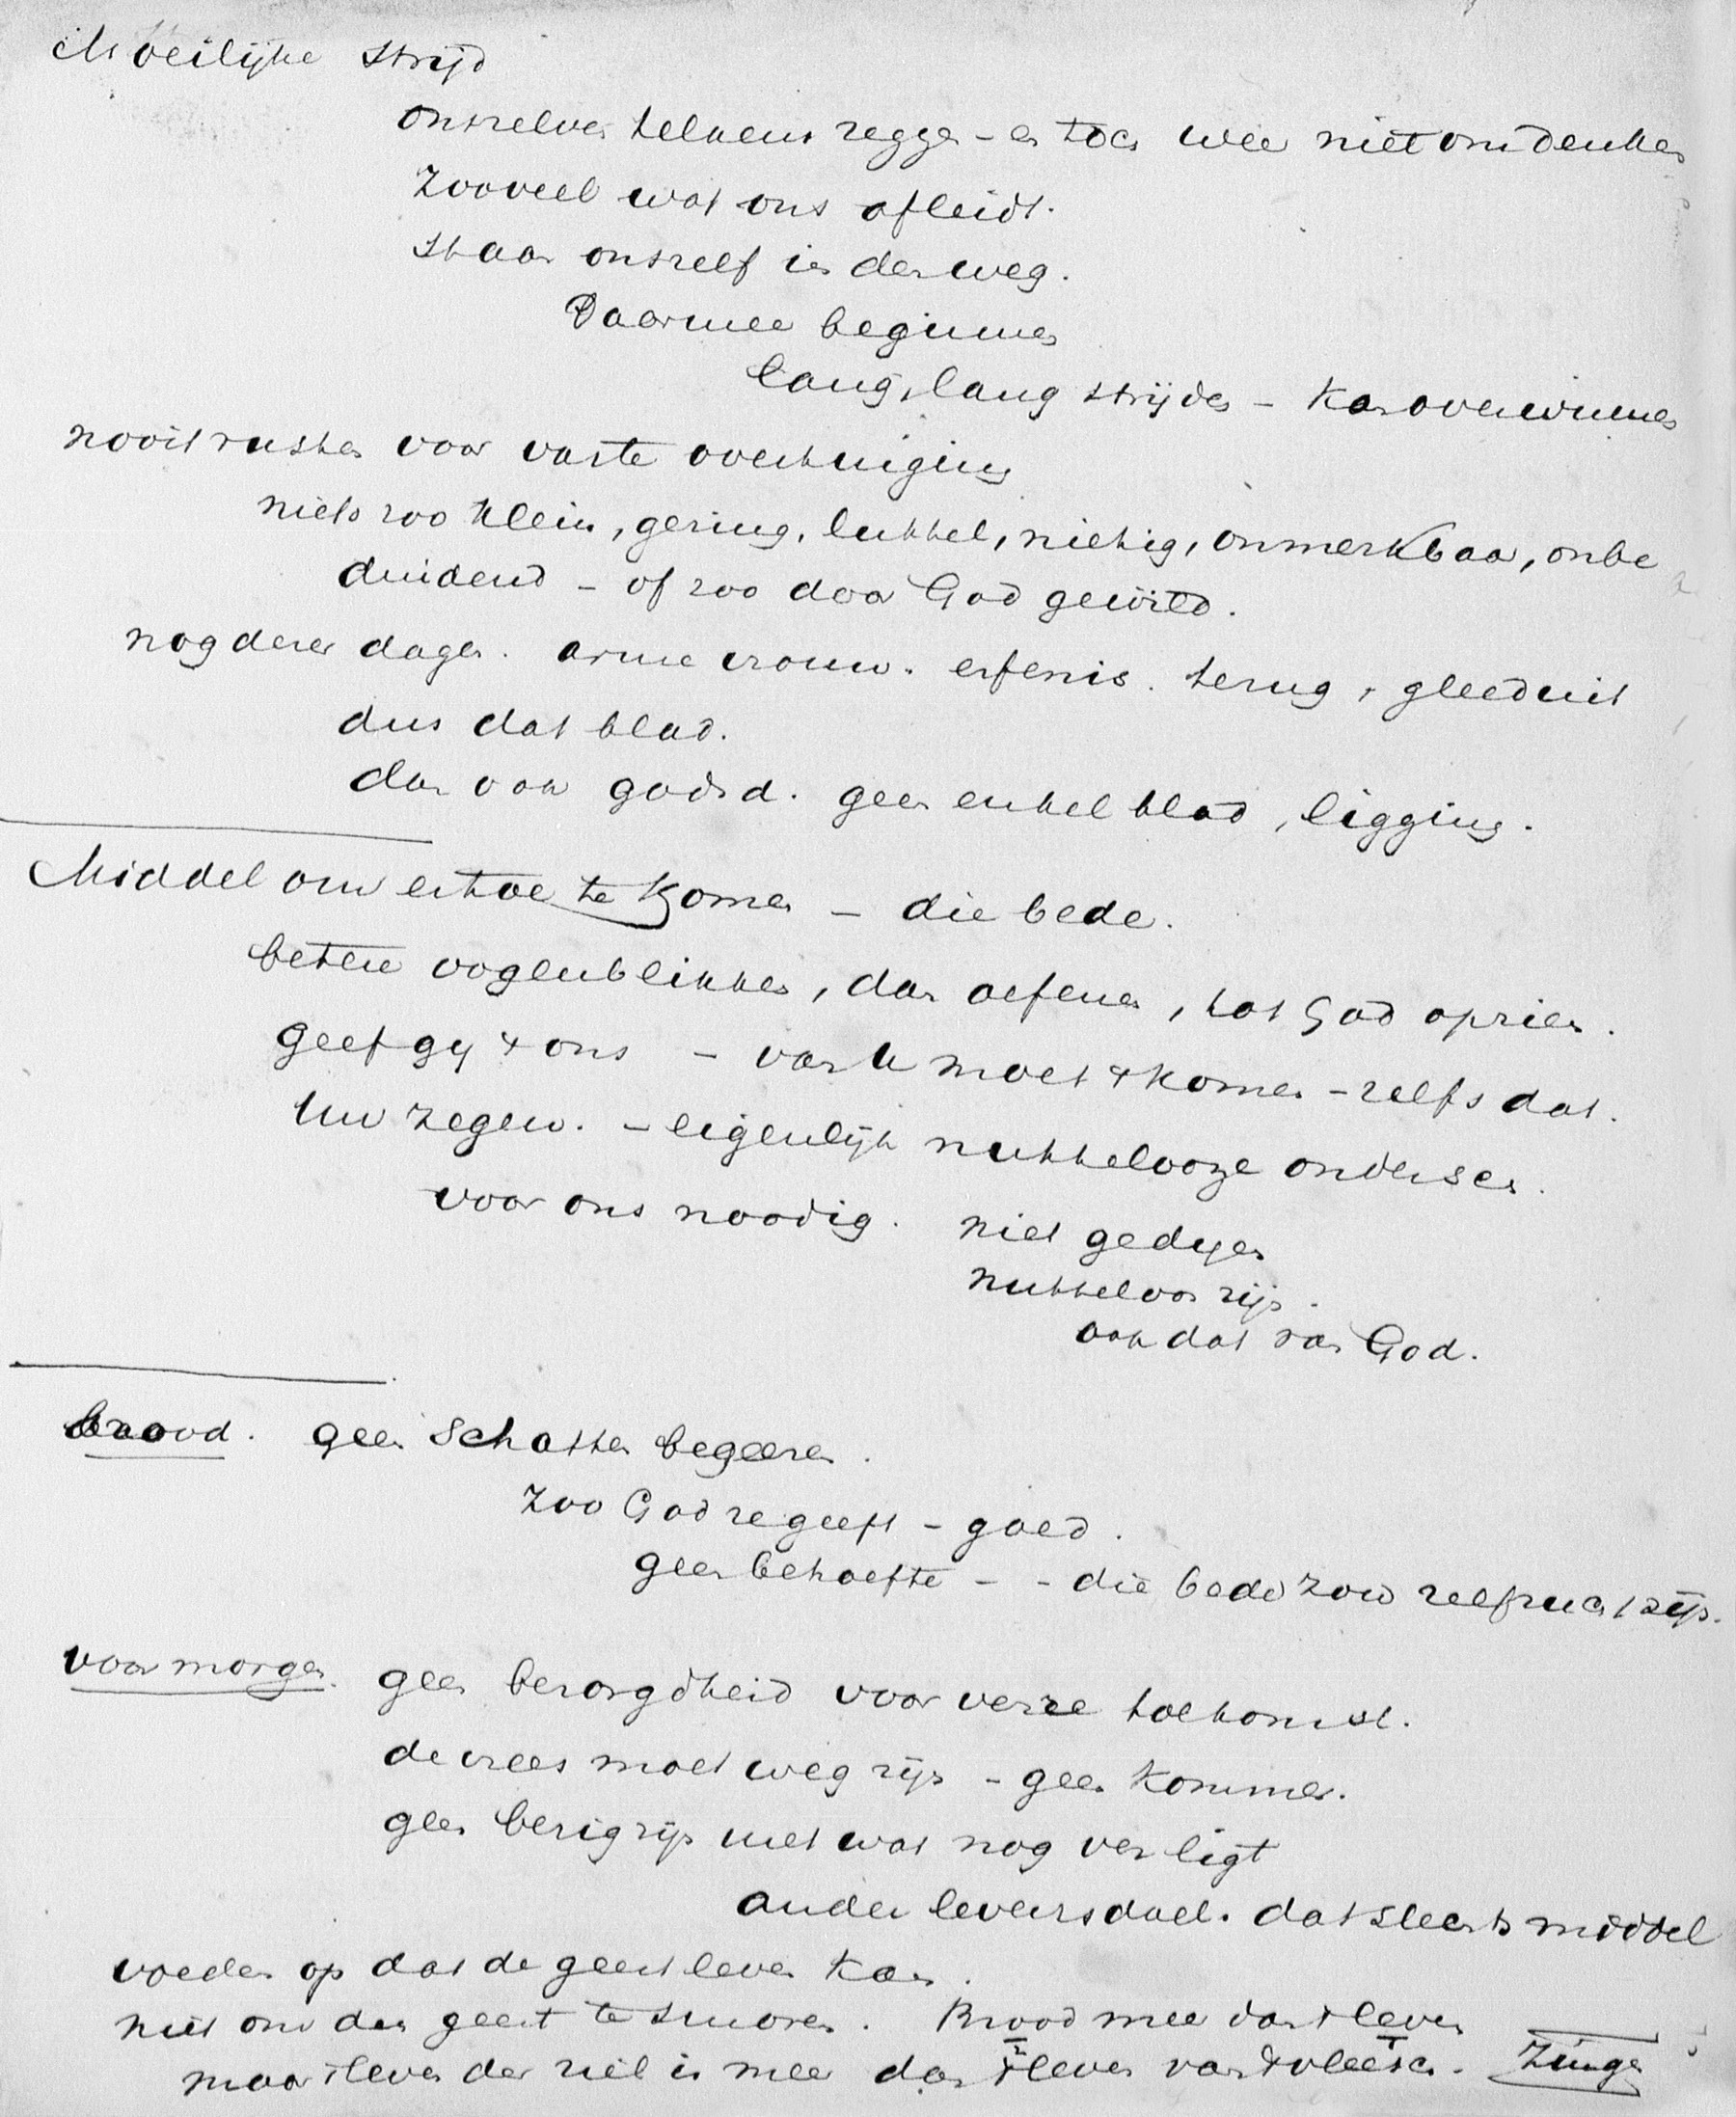 Moeilijke strijd
onszelven telkens zeggen - en toch weer niet om denken
zooveel wat ons afleidt.
staan onszelf in den weg.
Daarmee beginnen
lang, lang strijden - kan overwinnen
nooit rusten voor vaste overtuiging
niets zoo klein, gering, luttel, nietig, onmerkbaar, onbe
duidend - of zoo door God gewild.
nog dezer dagen. arme vrouw. erfenis. terug, gleed uit
dus dat blad.
dan ook godsd. geen enkel blad, ligging.
Middel om ertoe te komen - die bede.
betere oogenblikken, dan oefenen, tot God oprien.
geef gij 't ons - van U moet 't komen - zelfs dat.
Uw zegen. - eigenlijk nuttelooze onderser.
voor ons noodig. niet gedijen
nutteloos zijn.
ook dat van God.
brood. geen schatten begeeren.
zoo God ze geeft - goed.
geen behoefte - - die bede zou zelfzucht zijn.
voor morgen. geen bezorgdheid voor verre toekomst.
de vrees moet weg zijn - geen kommer.
geen bezig zijn met wat nog ver ligt
ander levensdoel. dat slechts middel
voeden op dat de geest leven kan.
niet om den geest te smoren. Brood meer dan 't leven
maar 't leven der ziel is meer dan 't leven van 't vleesch.